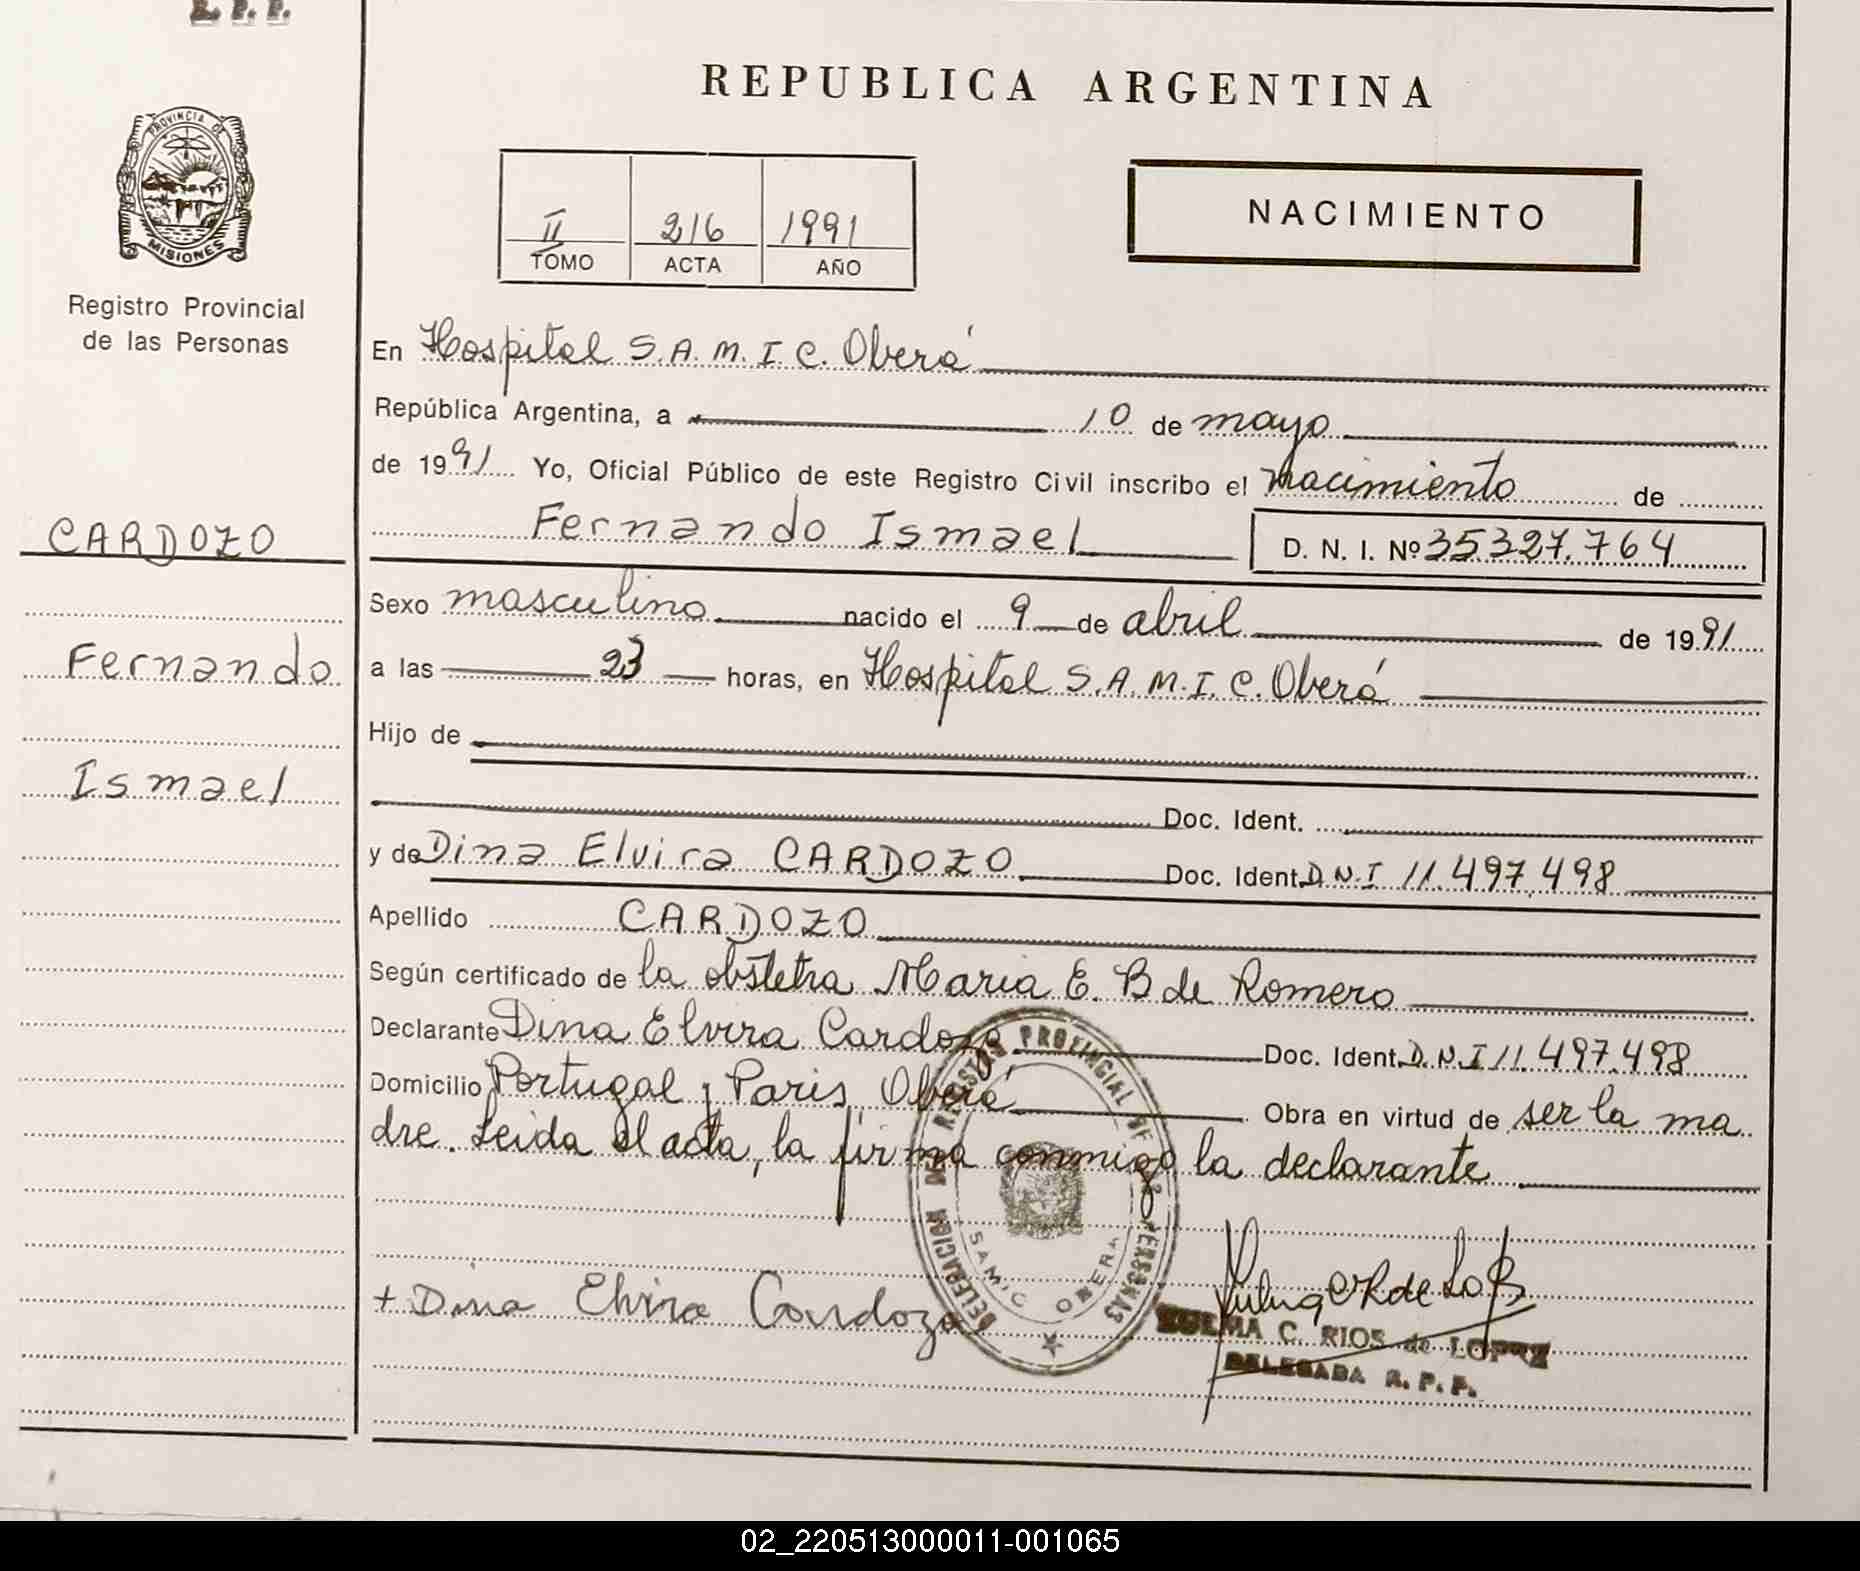 R. P. P.
REPUBLICA ARGENTINA
PROVINCIA DE
MISIONES
II 216 1991
TOMO ACTA AÑO
NACIMIENTO
Registro Provincial
de las Personas
En Hospital S.A.M.I.C. Oberá
República Argentina, a 10 de mayo
de 1991 Yo, Oficial Público de este Registro Civil inscribo el nacimiento de
CARDOZO
Fernando Ismael D. N. I. Nº 35.327.764
Sexo masculino nacido el 9 de abril de 1991
Fernando
a las 23 horas, en Hospital S.A.M.I.C. Oberá
Hijo de
Ismael
Doc. Ident.
y de Dina Elvira CARDOZO Doc. Ident. D.N.I 11.497.498
Apellido CARDOZO
Según certificado de la obstetra Maria E. B de Romero
Declarante Dina Elvira Cardozo Doc. Ident. D.N.I 11.497.498
Domicilio Portugal y Paris, Oberá Obra en virtud de ser la ma
dre. Leida el acta, la firma conmigo la declarante
DELEGACION REGISTRO PROVINCIAL DE PERSONAS
SAMIC OBERA
+ Dina Elvira Cardozo
ZULMA C. RIOS de LOPEZ
DELEGADA R. P. P.
02_220513000011-001065